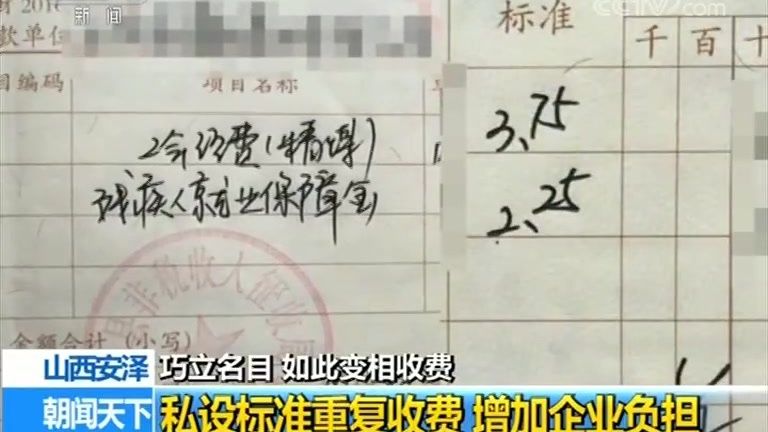 新闻
CCTV.com
财 201
款单位
标准
千 百 十
目编码 项目名称
工会经费(精煤) 3.75
残疾人就业保障金 2.25
县非税收入征收局
金额合计 (小写)
山西安泽 巧立名目 如此变相收费
朝闻天下 私设标准重复收费 增加企业负担